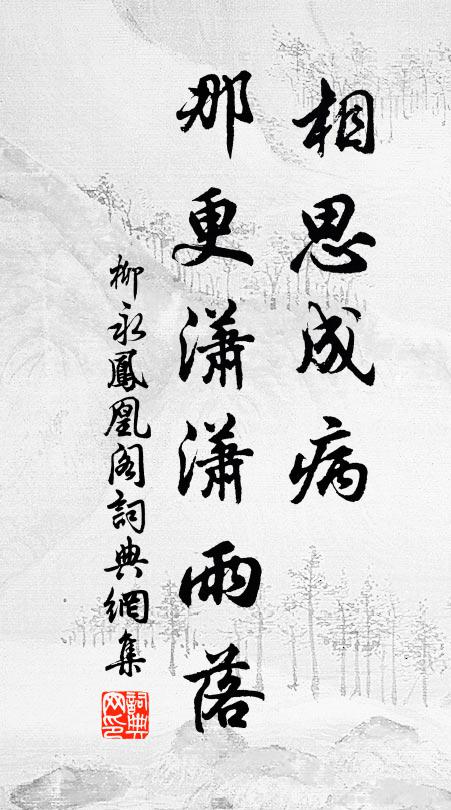 相思成病
那更瀟瀟雨落
柳永鳳凰閣詞典網集
詞典
网印